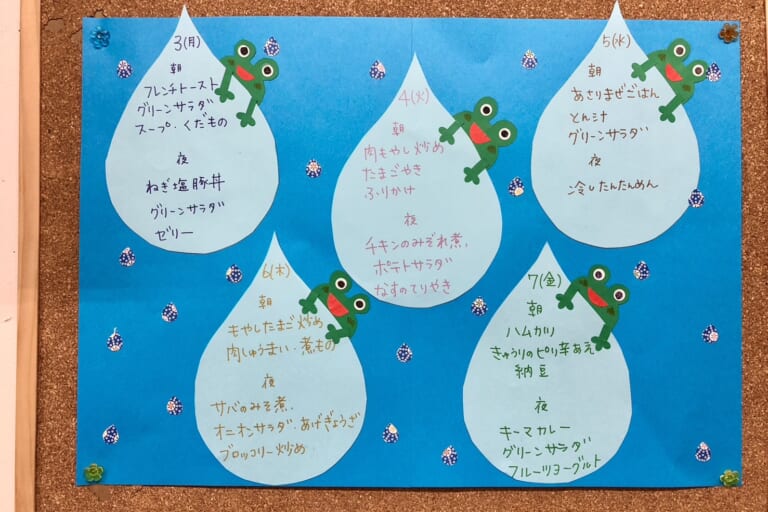 3(月)
朝
フレンチトースト
グリーンサラダ
スープ・くだもの
夜
ねぎ塩豚丼
グリーンサラダ
ゼリー
4(火)
朝
肉もやし炒め
たまごやき
ふりかけ
夜
チキンのみぞれ煮
ポテトサラダ
なすのてりやき
5(水)
朝
あさりまぜごはん
とん汁
グリーンサラダ
夜
冷したんたんめん
6(木)
朝
もやしたまご炒め
肉しゅうまい・煮もの
夜
サバのみそ煮
オニオンサラダ・あげぎょうざ
ブロッコリー炒め
7(金)
朝
ハムカツ
きゅうりのピリ辛あえ
納豆
夜
キーマカレー
グリーンサラダ
フルーツヨーグルト